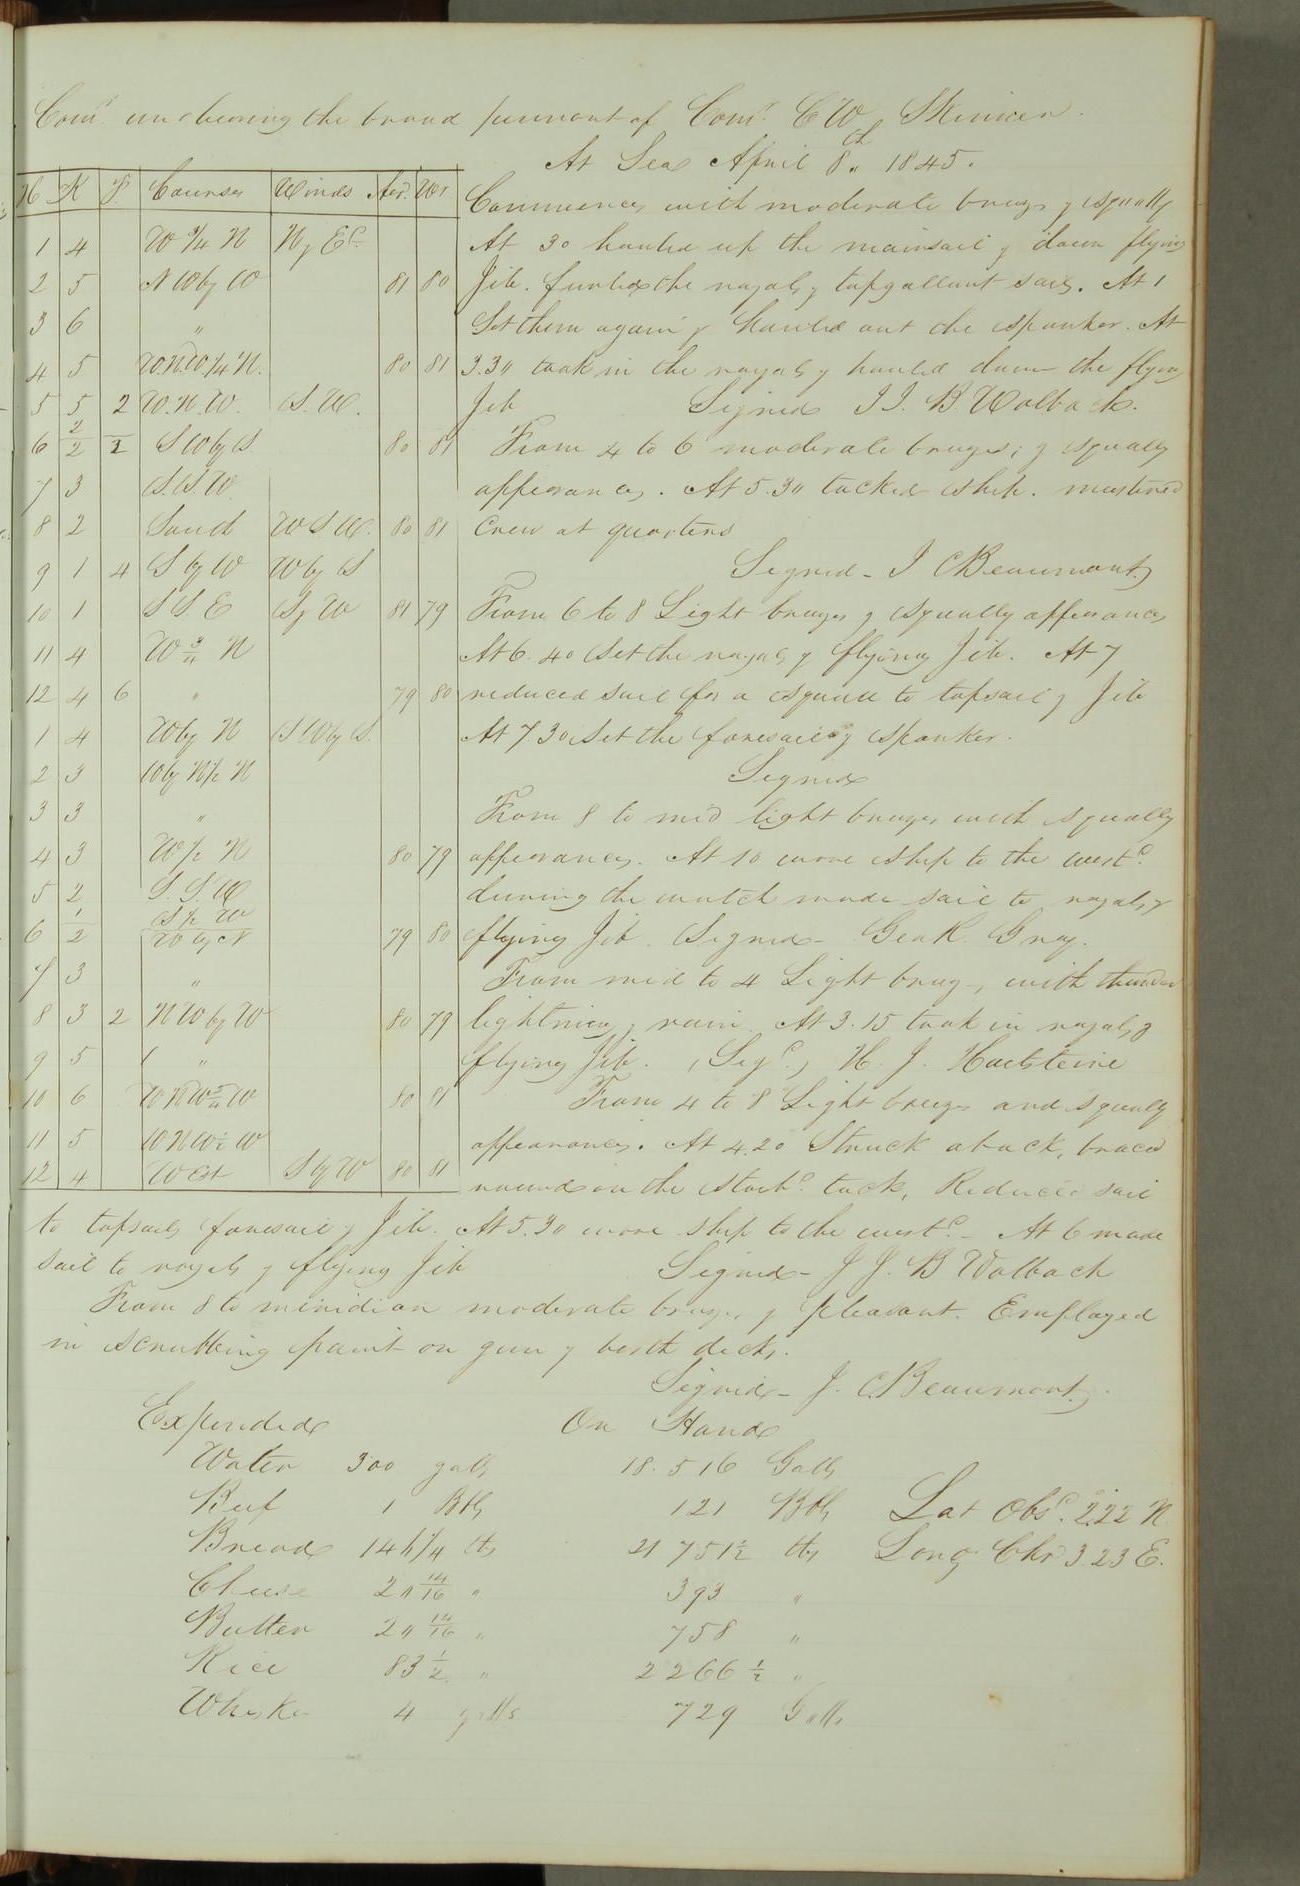 Com? and bearing the broad pennant of Comr. C W Skinner.
At Sea April 8th 1845.
H K F Courses Winds Air. Wr.
1 4 W 3/4 N N & Ed.
2 5 N W by W 81 80
3 6 "
4 5 W.N.W 1/4 N. 80 81
5 5 2 W.N.W. S.W.
6 2/2 2 S W by S 80 81
7 3 S.S.W.
8 2 South W S W. 80 81
9 1 4 S by W W by S
10 1 S S E S & W 81 79
11 4 W 3/4 N
12 4 6 " 79 80
1 4 W by N S W by S.
2 3 W by N 1/2 N
3 3 "
4 3 W 1/2 N 80 79
5 2 S.S.W
6 1/2 S 1/2 W / W by N 79 80
7 3 "
8 3 2 N W by W 80 79
9 5 "
10 6 W N W 3/4 W 80 81
11 5 W N W 1/2 W
12 4 West S by W 80 81
Commences with moderate breezes & squally
At 30 hauled up the mainsail & down flying
Jib. furled the royals & topgallant sails. At 1
Set them again & hauled out the spanker. At
3.30 took in the royals & hauled down the flying
Jib Signed J J. B. Walback.
From 4 to 6 moderate breezes; & squally
appearances. At 5.30 tacked ship. mustered
Crew at quarters
Signed - J C Beaumont
From 6 to 8 Light breezes & squally appearances
At 6.40 Set the royals & flying Jib. At 7
reduced sail for a squall to topsails & Jib
At 7.30 Set the foresail & spanker.
Signed
From 8 to mid light breezes with squally
appearances. At 10 wore ship to the westd.
during the watch made sail to royals &
flying Jib. Signed - Geo R. Gray.
From mid to 4 Light breezes, with thunder
lightning & rain. At 3.15 took in royals &
flying Jib. (Sigd.) H. J. Hartstene
From 4 to 8 Light breezes and squally
appearances. At 4.20 Struck aback, braced
round on the starbd. tack, Reduced sail
to topsails foresail & Jib. At 5.30 wore ship to the westd. - At 6 made
sail to royals & flying Jib Signed - J J. B Walbach
From 8 to meridian moderate breezes & pleasant. Employed
in scrubbing paint on gun & berth decks.
Signed - J. C. Beaumont.
Expended On Hand
Water 300 galls 18.516 Galls
Beef 1 Bbls 121 Bbls Lat Obsd. 2.22 N
Bread 146 1/4 lbs 21 751 1/2 lbs Long Chr 3.23 E.
Cheese 20 14/16 " 393 "
Butter 20 14/16 " 758 "
Rice 83 1/2 " 2266 1/2 "
Whiskey 4 galls 729 Galls